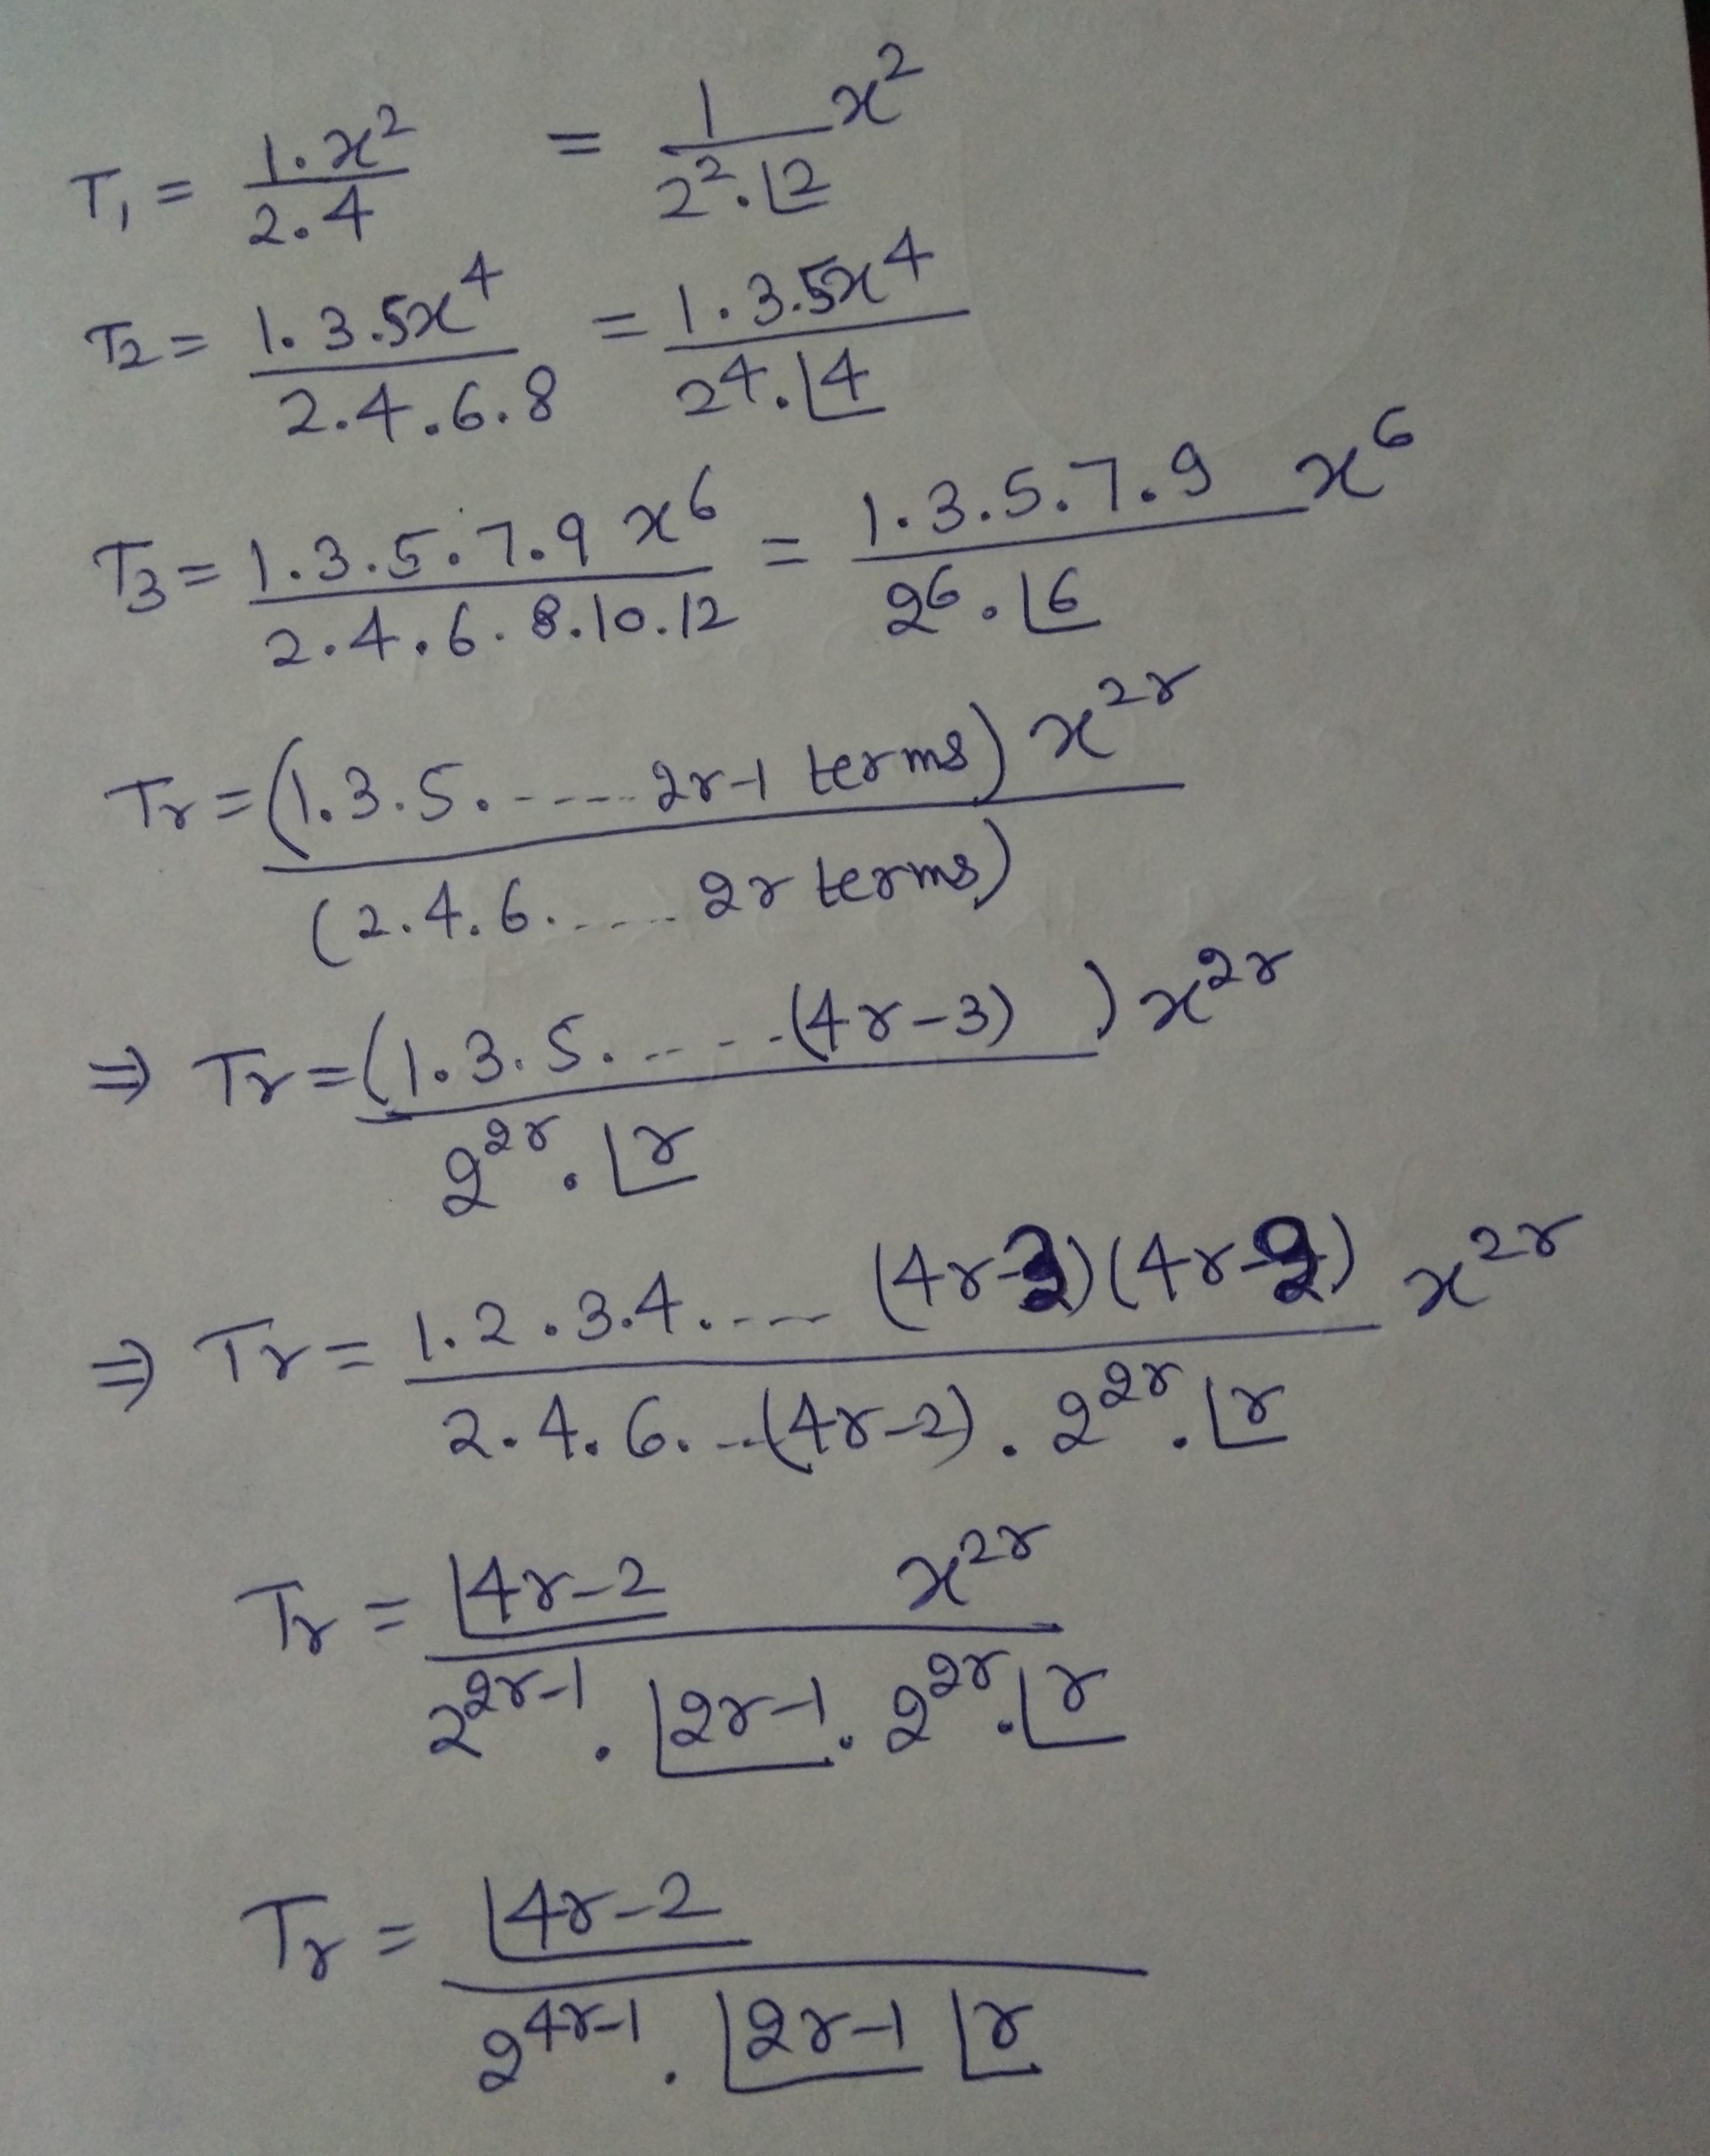 T₁ = 1.x²/2.4 = 1/(2².⌊2) x²
T₂ = 1.3.5x⁴/2.4.6.8 = 1.3.5x⁴/(2⁴.⌊4)
T₃ = 1.3.5.7.9 x⁶/2.4.6.8.10.12 = 1.3.5.7.9 x⁶/(2⁶.⌊6)
Tᵣ = (1.3.5.----- 2r-1 terms) x²ʳ/(2.4.6.----- 2r terms)
⇒ Tᵣ = (1.3.5.-----(4r-3)) x²ʳ/(2²ʳ.⌊r)
⇒ Tᵣ = 1.2.3.4.---- (4r-3)(4r-2) x²ʳ/(2.4.6.--(4r-2).2²ʳ.⌊r)
Tᵣ = ⌊4r-2 x²ʳ/(2²ʳ⁻¹.⌊2r-1.2²ʳ.⌊r)
Tᵣ = ⌊4r-2/(2⁴ʳ⁻¹.⌊2r-1 ⌊r)